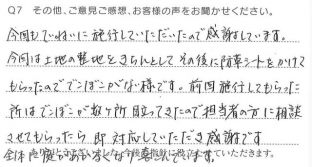 Q7 その他、ご意見ご感想、お客様の声をお聞かせください。
今回もていねいに施行していただいたので感謝しています。
今回は土地の整地をきちんとしてその後に防草シートをかけて
もらったのででこぼこがない様です。前回施行してもらった
所はでこぼこが数ヶ所目立ってきたので担当者の方に相談
させてもらったら即対応していただき感謝です
全体に庭が
いただきます。